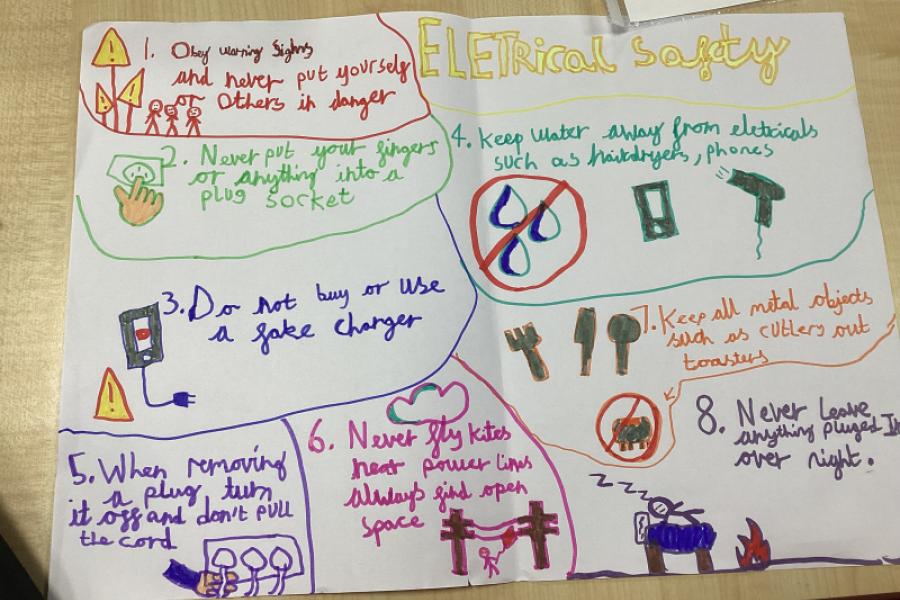 ELETRical Safty
1. Obey warning Sighns
and never put yourself
or Others in danger
2. Never put your fingers
or anything into a
plug socket
3. Do not buy or use
a fake charger
4. Keep water away from eletricals
such as hairdryers, phones
5. When removing
a plug turn
it off and don't pull
the cord
6. Never fly kites
near power lines
always find open
space
7. Keep all metal objects
such as cutlery out
toasters
8. Never leave
anything pluged In
over night.
z z z z